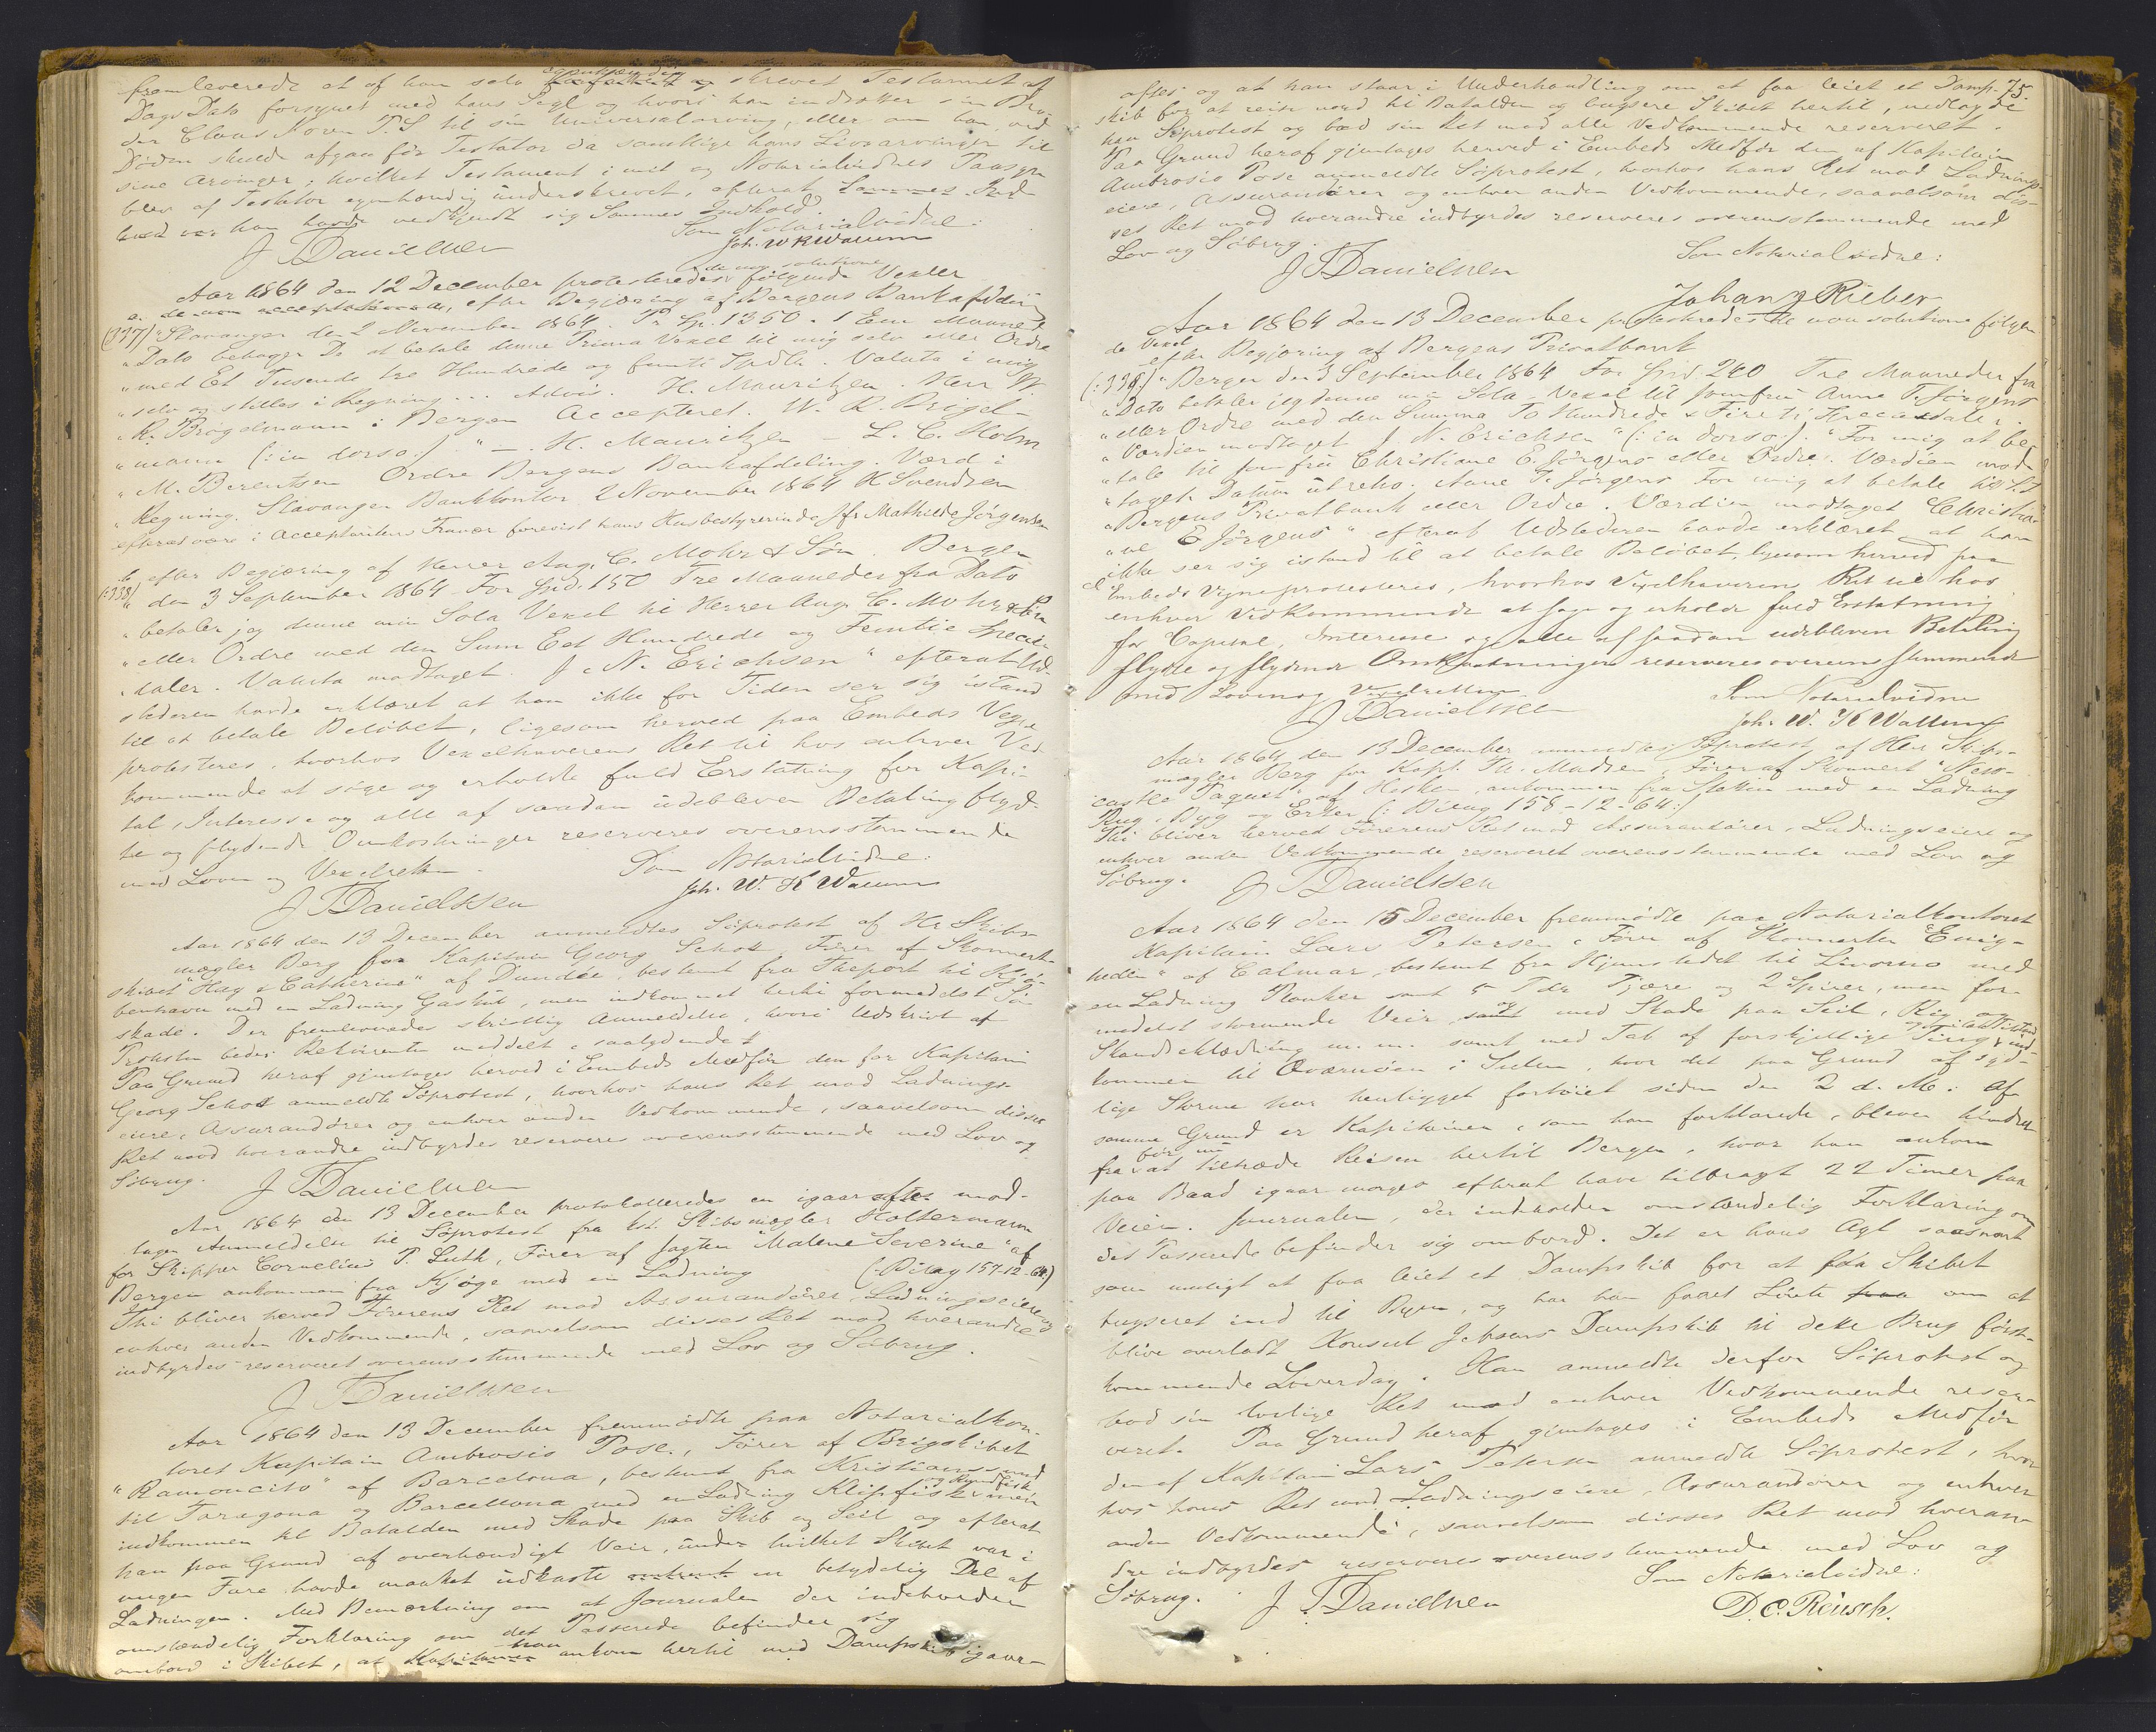 fremleverede et af ham selv egenhændig skrevet Testament af
Dags Dato forsynet med hans Segl og hvori han indsætter sin Bro-
der Claus Koren T. S til sin Universalarving, eller om han, ved
Døden skulde afgaa før Testator da samtlige hans Livsarvinger til
sine Arvinger; hvilket Testament i mit og Notarialvidnes Paasyn
blev af Testator egenhændig underskrevet, efterat
han havde vedkjendt sig Sammes Indhold.
Som Notarialvidne:
J Danielssen Joh. W K Wallem
de non solutione
Aar 1864 den 12 December protesteredes følgende Vexler
a. de non acceptatione, efter Begjæring af Bergens Bankafdeling
(:337) "Stavanger den 2 November 1864. Pr Sp. 1350. 1 Een Maaned
"Dato behager De at betale denne Prima Vexel til mig selv eller Ordre
"med Et Tusende tre Hundrede og femti Spdlr. Valuta i mig
"selv og stilles i Regning... Advis. H. Mauritzen. Herr W.
"R. Brögelmann i Bergen Accepteret. W. R. Brögel-
"mann (: in dorso:) " — H. Mauritzen — L. C. Holm
"M. Berentsen Ordre Bergens Bankafdeling. Værd i
"Regning. Stavanger Bankkontor 2 November 1864 K Svendsen
efterat være i Acceptantens Fravær forevist hans Husbestyrerinde Jfr Mathilde Jörgensen
b. efter Begjæring af Herrer Aug. C. Mohr & Søn. Bergen
(:338) " den 3 September 1864 For Spd. 150 Tre Maaneder fra Dato
"betaler jeg denne min Sola Vexel til Herrer Aug. C. Mohr & Søn
"eller Ordre med den Sum Eet Hundrede og Femtie Specie-
"daler. Valuta modtaget. J. N. Erichsen " efterat Ud-
stederen havde erklæret at han ikke for Tiden ser sig istand
til at betale Beløbet, ligesom herved paa Embeds Vegne
protesteres, hvorhos Vexelhaverens Ret til hos enhver Ved-
kommende at søge og erholde fuld Erstatning for Kapi-
tal, Interesse og alle af saadan udebleven Betaling flyd-
te og flydende Omkostninger reserveres overensstemmende
med Loven og Vexelretten. Som Notarialvidne:
J Danielssen Joh. W. K Wallem
Aar 1864 den 13 December anmeldtes Søprotest af Hr Skibs-
mægler Berg for Kapitain Georg Schott, Fører af Skonnert-
skibet "Hay & Catherine" af Dundee, bestemt fra Theport til Kjø-
benhavn med en Ladning Gaskul, men indkommet hertil formedelst Sø-
skade. Der fremleveredes skriftlig Anmeldelse, hvori Udskrivt af
Protesten bedes Rekvirenten meddelt, saalydende:
Paa Grund heraf gjentages herved i Embeds Medfør den for Kapitain
Georg Schott anmeldte Søprotest, hvorhos hans Ret mod Ladnings-
eiere, Assurandører og enhver anden Vedkommende, saavelsom disses
Ret mod hverandre indbyrdes reserveres overensstemmende med Lov og
Søbrug. J Danielssen
Aar 1864 den 13 December protokolleredes en igaar aftes mod-
tagen Anmeldelse til Søprotest fra Hr. Skibsmægler Holtermann
for Skipper Cornelius P. Luth, Fører af Jagten "Malene Severine" af
Bergen ankommen fra Kjøge med en Ladning (:Bilag 157-12-64)
Thi bliver herved Førerens Ret mod Assurandører Ladningseiere og
enhver anden Vedkommende, saavelsom disses Ret mod hverandre
indbyrdes reserveret overensstemmende med Lov og Søbrug.
J Danielssen
Aar 1864 den 13 December fremmødte paa Notarialkon-
toret Kapitain Ambrosio Pose, Fører af Brigskibet
"Ramoncito" af Barcelona, bestemt fra Kristianssund
til Taragona og Barcellona med en Ladning Klipfisk og Rundfisk men
indkommen til Batalden med Skade paa Skib og Seil og efterat
han paa Grund af overhændigt Veir, under hvilket Skibet var i
megen Fare havde maattet udkaste en betydelig Del af
Ladningen. Med Bemærkning om at Journalen der indeholder
omstændelig Forklaring om det Passerede befinder sig
ombord i Skibet, at han ankom hertil med Dampskib igaar-
75.
aftes og at han staar i Underhandling om et faa leiet et Damp-
skib for at reise nord til Batalden og bugsere Skibet hertil, nedlagde
han Søprotest og bad sin Ret mod alle Vedkommende reserveret.
Paa Grund heraf gjentages herved i Embeds Medfør den af Kapitain
Ambrosio Pose anmeldte Søprotest, hvorhos hans Ret mod Ladnings-
eiere, Assurandører og enhver anden Vedkommende, saavelsom dis-
ses Ret mod hverandre indbyrdes reserveres overensstemmende med
Lov og Søbrug. Som Notarialvidne:
J Danielssen Johan J Rieber
Aar 1864 den 13 December protesteredes de non solutione følgen-
de Vexel
efter Begjæring af Bergens Privatbank
(:339:) "Bergen den 3 September 1864 For Spd. 240 Tre Maaneder fra
"Dato betaler jeg denne min Sola-Vexel til Jomfru Anne F. Jørgens
"eller Ordre med den Summa To Hundrede & Fireti Speciedaler.
"Værdien modtaget J. N. Erichsen " (: in dorso:). "For mig at be-
"tale til Jomfru Christiane E. Jörgens eller Ordre. Værdien mod-
"taget. Datum ut retro. Anne F. Jörgens For mig at betale til S.T
"Bergens Privatbank eller Ordre. Værdien modtaget Christia-
"ne E Jörgens " efterat Udstederen havde erklæret at han
ikke ser sig istand til at betale Beløbet, ligesom herved paa
Embeds Vegne protesteres, hvorhos Vexelhaverens Ret til hos
enhver Vedkommende at søge og erholde fuld Erstatning
for Capital, Interesse og alle af saadan udebleven Betaling
flydte og flydende Omkostninger reserveres overensstemmende
med Loven og Vexelretten. Som Notarialvidne
J Danielssen Joh. W. K Wallem
Aar 1864 den 13 December anmeldtes Søprotest af Herr Skibs-
mægler Berg for Kapt. Th. Madsen, Fører af Skonnert "New-
castle Paquet" af Hesken, ankommen fra Stettin med en Ladning
Rug, Byg og Erter (: Bilag 158-12-64:)
Thi bliver herved Førerens Ret mod Assurandører, Ladningseiere og
enhver anden Vedkommende reserveret overensstemmende med Lov og
Søbrug. J Danielssen
Aar 1864 den 15 December fremmødte paa Notarialkontoret
Kapitain Lars Petersen, Fører af Skonnerten "Enig-
heden" af Calmar, bestemt fra Hjemstedet til Livorno med
en Ladning Planker samt 5 Tdr Tjære og 2 Spirer, men for-
medelst stormende Veir og med Skade paa Seil, Rig og
Skandseklædning m. m. samt med Tab af forskjelligt ind-
kommen til Qværnøen i Sulen, hvor det paa Grund af syd-
lige Storme har henligget fortøiet siden den 2 d. M: Af
samme Grund er Kapitainen, som han forklarede, bleven hindret
fra før nu at tiltræde Reisen hertil Bergen, hvor han ankom
paa Baad igaar morges efterat have tilbragt 22 Timer paa
Veien. Journalen, der indeholder omstændelig Forklaring om
det Passerede befinder sig ombord. Det er hans Agt saasnart
som muligt at faa leiet et Dampskib for at faa Skibet
bugseret ind til Byen, og har han faaet Løfte om at
blive overladt Konsul Jebsens Dampskib til dette Brug først-
kommende Løverdag. Han anmeldte derfor Søprotest og
bad sin lovlige Ret mod enhver Vedkommende reser-
veret. Paa Grund heraf gjentages i Embeds Medfør
den af Kapitain Lars Petersen anmeldte Søprotest, hvor-
hos hans Ret mod Ladningseiere, Assurandører og enhver
anden Vedkommende, saavelsom disses Ret mod hveran-
dre indbyrdes reserveres overensstemmende med Lov og
Søbrug. Som Notarialvidne:
J. Danielssen D. C. Reusch.